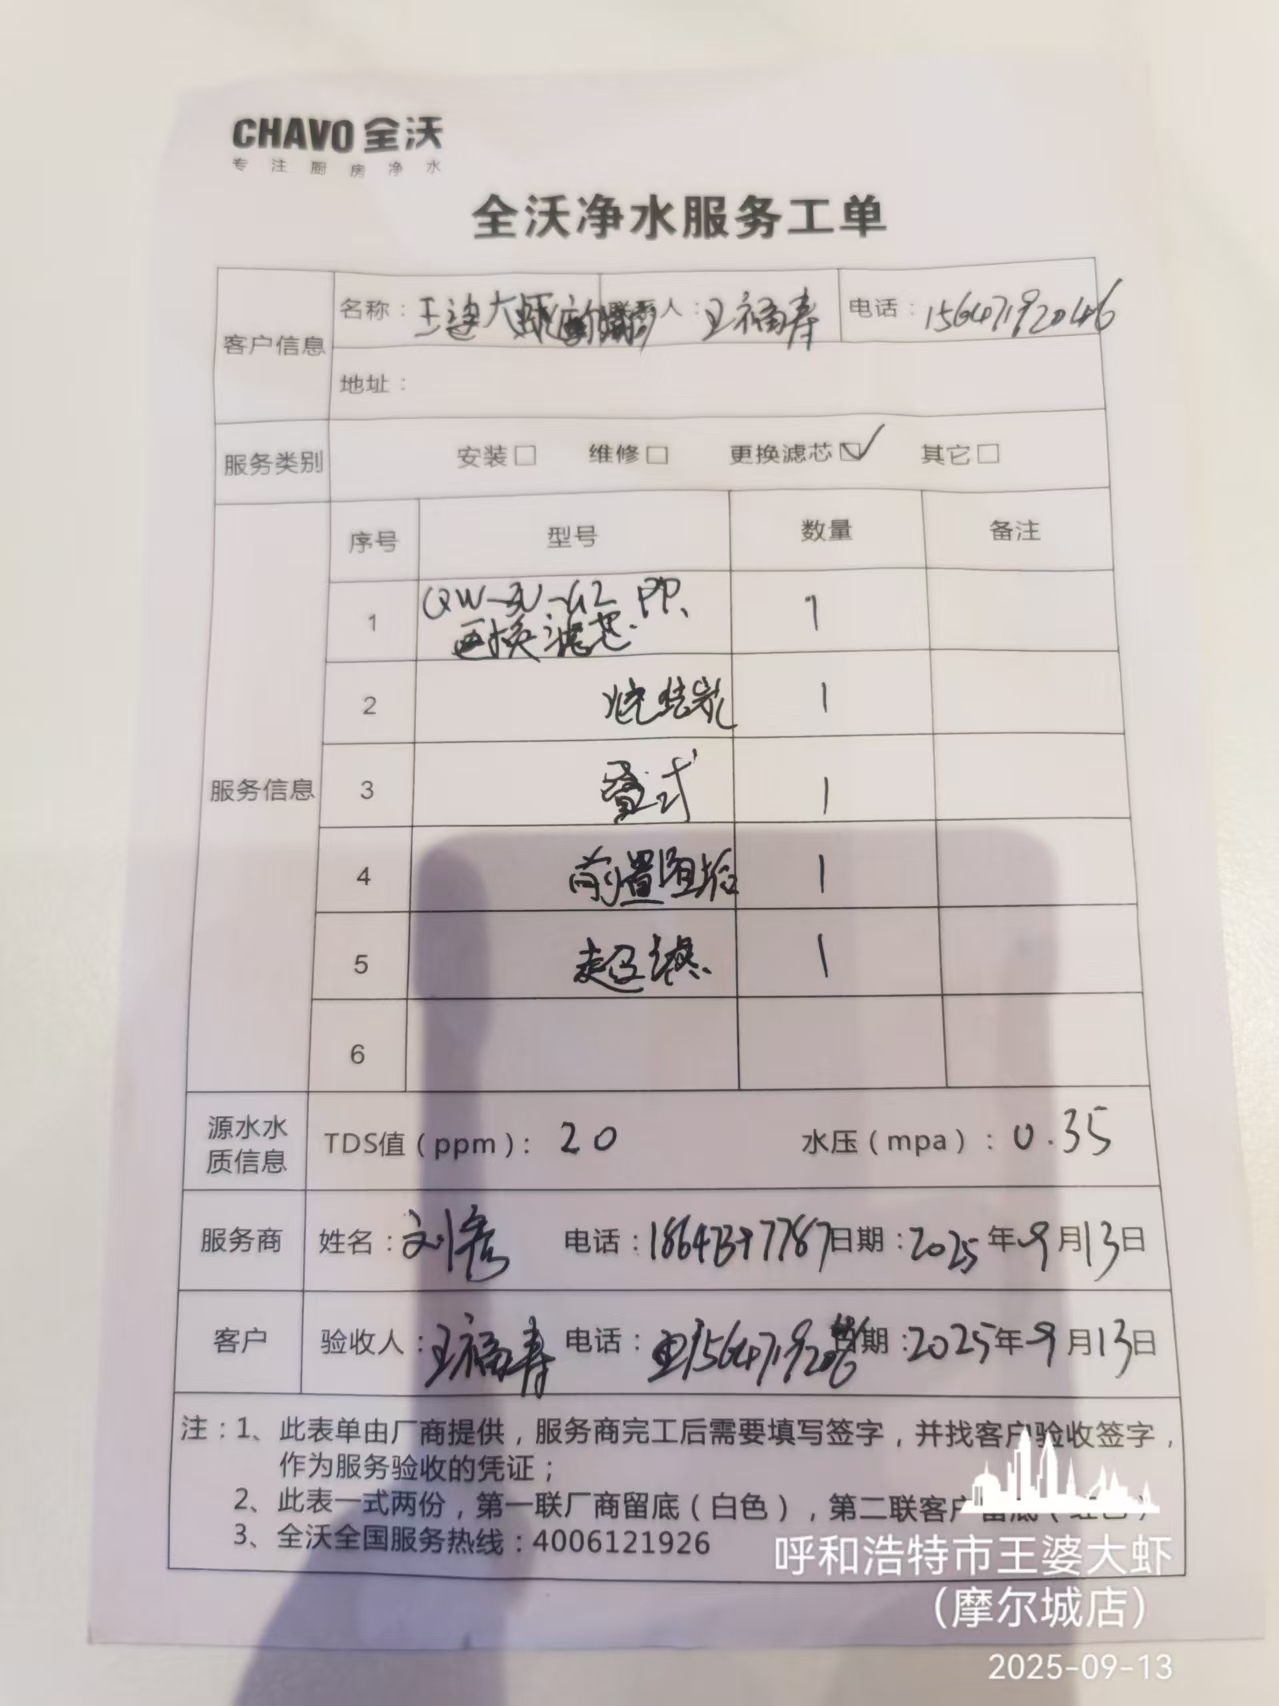 CHAVO 全沃
专注厨房净水
全沃净水服务工单
客户信息
名称：王婆大虾 人：王福寿 电话：15647192046
地址：
服务类别 安装□ 维修□ 更换滤芯☑ 其它□
服务信息
序号 型号 数量 备注
1 PP、 1
更换滤芯.
2 1
3 叠式 1
4 前置阻垢 1
5 超滤 1
6
源水水质信息 TDS值（ppm）：20 水压（mpa）：0.35
服务商 姓名：刘 电话： 日期：2025年9月13日
客户 验收人：王福寿 电话： 日期：2025年9月13日
注：1、此表单由厂商提供，服务商完工后需要填写签字，并找客户验收签字，
作为服务验收的凭证；
2、此表一式两份，第一联厂商留底（白色），第二联客户留底（红色）
3、全沃全国服务热线：4006121926
呼和浩特市王婆大虾
（摩尔城店）
2025-09-13